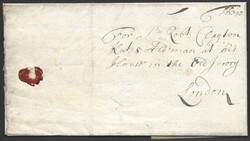 For Sr Robt Clayton
Knt & Aldman at his
house in the Old Jurory
London